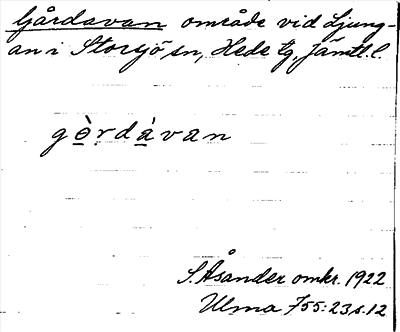 Gårdavan område vid Ljung-
an i Storsjö sn, Hede tg, Jämtl. l.
gòrdávan
S. Åsander omkr. 1922
Ulma 755:23, s. 12